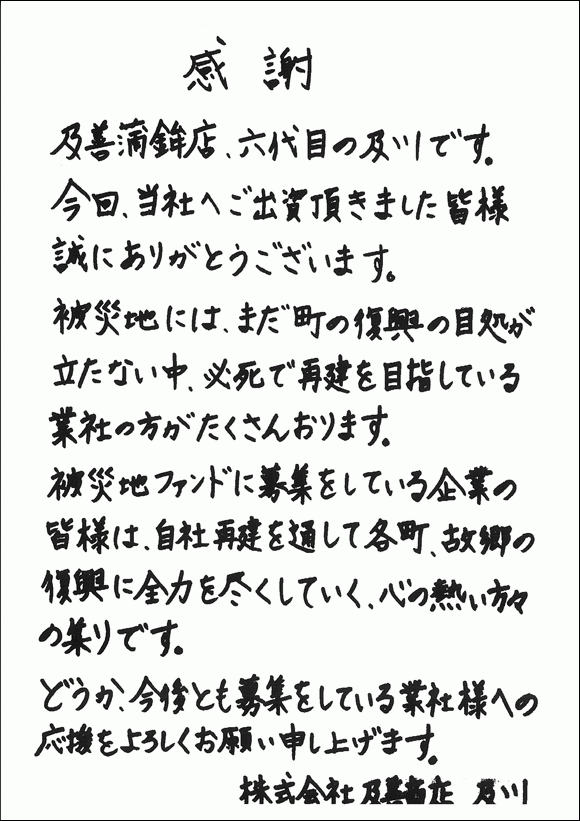 感謝
及善蒲鉾店、六代目の及川です。
今回、当社へご出資頂きました皆様
誠にありがとうございます。
被災地には、まだ町の復興の目処が
立たない中、必死で再建を目指している
業社の方がたくさんおります。
被災地ファンドに募集をしている企業の
皆様は、自社再建を通して各町、故郷の
復興に全力を尽くしていく、心の熱い方々
の集りです。
どうか、今後とも募集をしている業社様への
応援をよろしくお願い申し上げます。
株式会社及善商店 及川